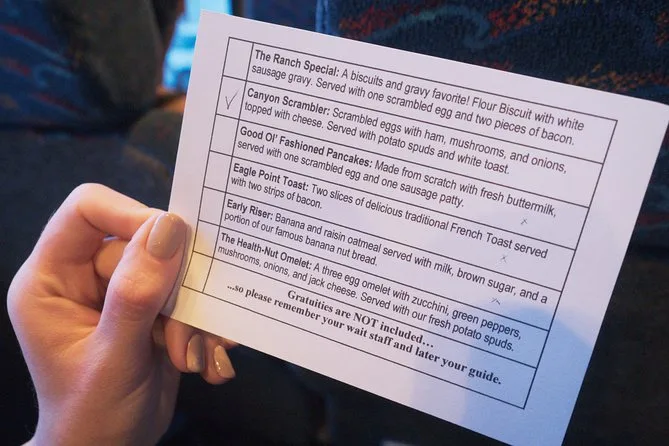 The Ranch Special: A biscuits and gravy favorite! Flour Biscuit with white
sausage gravy. Served with one scrambled egg and two pieces of bacon.
Canyon Scrambler: Scrambled eggs with ham, mushrooms, and onions,
topped with cheese. Served with potato spuds and white toast.
Good Ol' Fashioned Pancakes: Made from scratch with fresh buttermilk,
served with one scrambled egg and one sausage patty.
Eagle Point Toast: Two slices of delicious traditional French Toast served
with two strips of bacon.
Early Riser: Banana and raisin oatmeal served with milk, brown sugar, and a
portion of our famous banana nut bread.
The Health-Nut Omelet: A three egg omelet with zucchini, green peppers,
mushrooms, onions, and jack cheese. Served with our fresh potato spuds.
Gratuities are NOT included...
...so please remember your wait staff and later your guide.